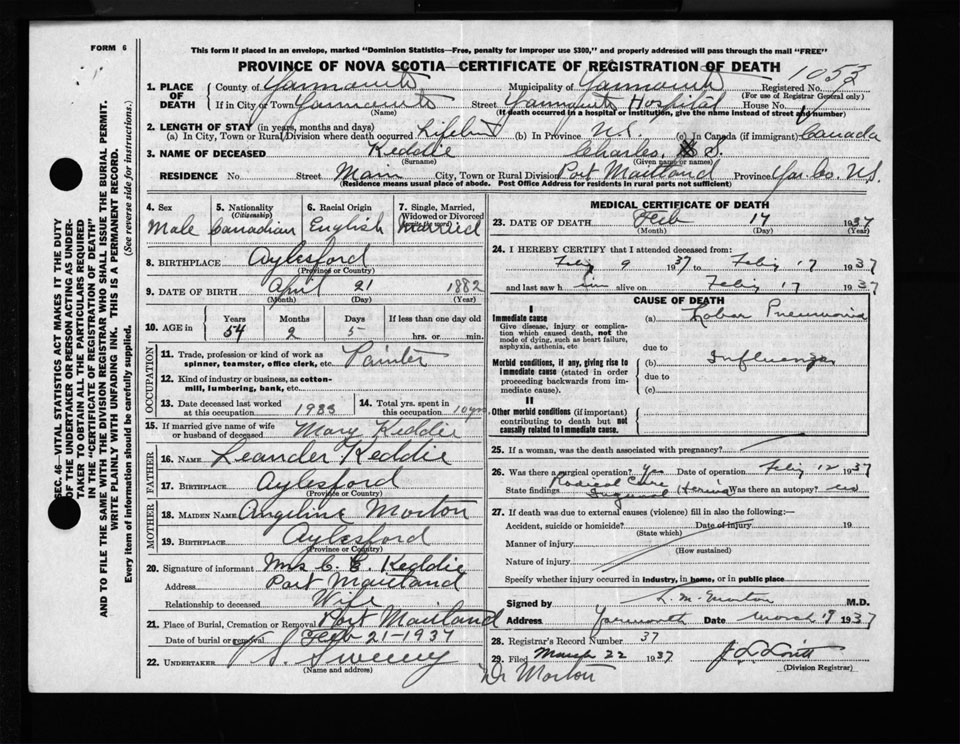 FORM 6
This form if placed in an envelope, marked "Dominion Statistics—Free, penalty for improper use $300," and properly addressed will pass through the mail "FREE"
PROVINCE OF NOVA SCOTIA—CERTIFICATE OF REGISTRATION OF DEATH
1053
1. PLACE OF DEATH County of Yarmouth Municipality of Yarmouth Registered No.
(For use of Registrar General only)
If in City or Town Yarmouth Street Yarmouth Hospital House No.
(Name) (If death occurred in a hospital or institution, give the name instead of street and number)
2. LENGTH OF STAY (in years, months and days)
(a) In City, Town or Rural Division where death occurred Lifetime (b) In Province N.S. (c) In Canada (if immigrant) Canada
3. NAME OF DECEASED Keddie Charles S.
(Surname) (Given name or names)
RESIDENCE No. Street Main City, Town or Rural Division Port Maitland Province Yar. Co. N.S.
(Residence means usual place of abode. Post Office Address for residents in rural parts not sufficient)
4. Sex Male
5. Nationality (Citizenship) Canadian
6. Racial Origin English
7. Single, Married, Widowed or Divorced Married
8. BIRTHPLACE Aylesford
(Province or Country)
9. DATE OF BIRTH April 21 1882
(Month) (Day) (Year)
10. AGE in Years 54 Months 2 Days 5 If less than one day old hrs. or min.
OCCUPATION
11. Trade, profession or kind of work as spinner, teamster, office clerk, etc. Painter
12. Kind of industry or business, as cotton-mill, lumbering, bank, etc.
13. Date deceased last worked at this occupation 1933
14. Total yrs. spent in this occupation 10 yrs
15. If married give name of wife or husband of deceased Mary Keddie
FATHER
16. NAME Leander Keddie
17. BIRTHPLACE Aylesford
(Province or Country)
MOTHER
18. MAIDEN NAME Angeline Morton
19. BIRTHPLACE Aylesford
(Province or Country)
20. Signature of informant Mrs C. E. Keddie
Address Port Maitland
Relationship to deceased Wife
21. Place of Burial, Cremation or Removal Port Maitland
Date of burial or removal Feb 21-1937
22. UNDERTAKER S. Sweeny
(Name and address)
MEDICAL CERTIFICATE OF DEATH
23. DATE OF DEATH Feb 17 1937
(Month) (Day) (Year)
24. I HEREBY CERTIFY that I attended deceased from:
Feby 9 1937 to Feby 17 1937
and last saw him alive on Feby 17 1937
CAUSE OF DEATH
I
Immediate cause
Give disease, injury or complication which caused death, not the mode of dying, such as heart failure, asphyxia, asthenia, etc
(a) Lobar Pneumonia
due to
Morbid conditions, if any, giving rise to immediate cause (stated in order proceeding backwards from immediate cause).
(b) Influenza
due to
(c)
II
Other morbid conditions (if important) contributing to death but not causally related to immediate cause.
25. If a woman, was the death associated with pregnancy?
26. Was there a surgical operation? Yes Date of operation Feby 12 1937
State findings Radical Cure Inguinal Hernia Was there an autopsy? no
27. If death was due to external causes (violence) fill in also the following:—
Accident, suicide or homicide? Date of injury 19
(State which)
Manner of injury
(How sustained)
Nature of injury
Specify whether injury occurred in industry, in home, or in public place
Signed by L. M. Morton M.D.
Address Yarmouth Date March 1937
28. Registrar's Record Number 37
29. Filed March 22 1937
(Division Registrar)
Dr Morton
SEC. 46—VITAL STATISTICS ACT MAKES IT THE DUTY
OF THE UNDERTAKER OR PERSON ACTING AS UNDER-
TAKER TO OBTAIN ALL THE PARTICULARS REQUIRED
IN THE "CERTIFICATE OF REGISTRATION OF DEATH"
AND TO FILE THE SAME WITH THE DIVISION REGISTRAR WHO SHALL ISSUE THE BURIAL PERMIT.
WRITE PLAINLY WITH UNFADING INK. THIS IS A PERMANENT RECORD.
Every item of information should be carefully supplied. (See reverse side for instructions.)